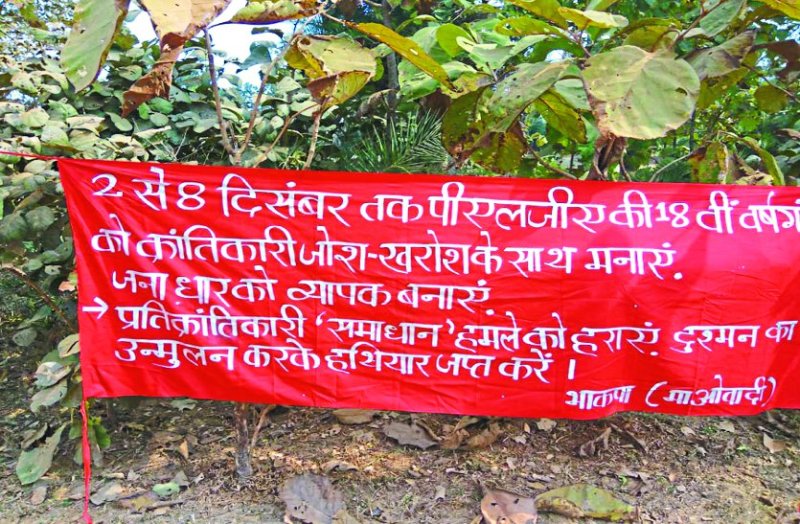 2 से 8 दिसंबर तक पीएलजीए की 18 वीं वर्षगं
को क्रांतिकारी जोश-खरोश के साथ मनाएं.
जनाधार को व्यापक बनाएं
→ प्रतिक्रांतिकारी 'समाधान' हमले को हराएं. दुश्मन का
उन्मुलन करके हथियार जप्त करें ।
भाकपा (माओवादी)